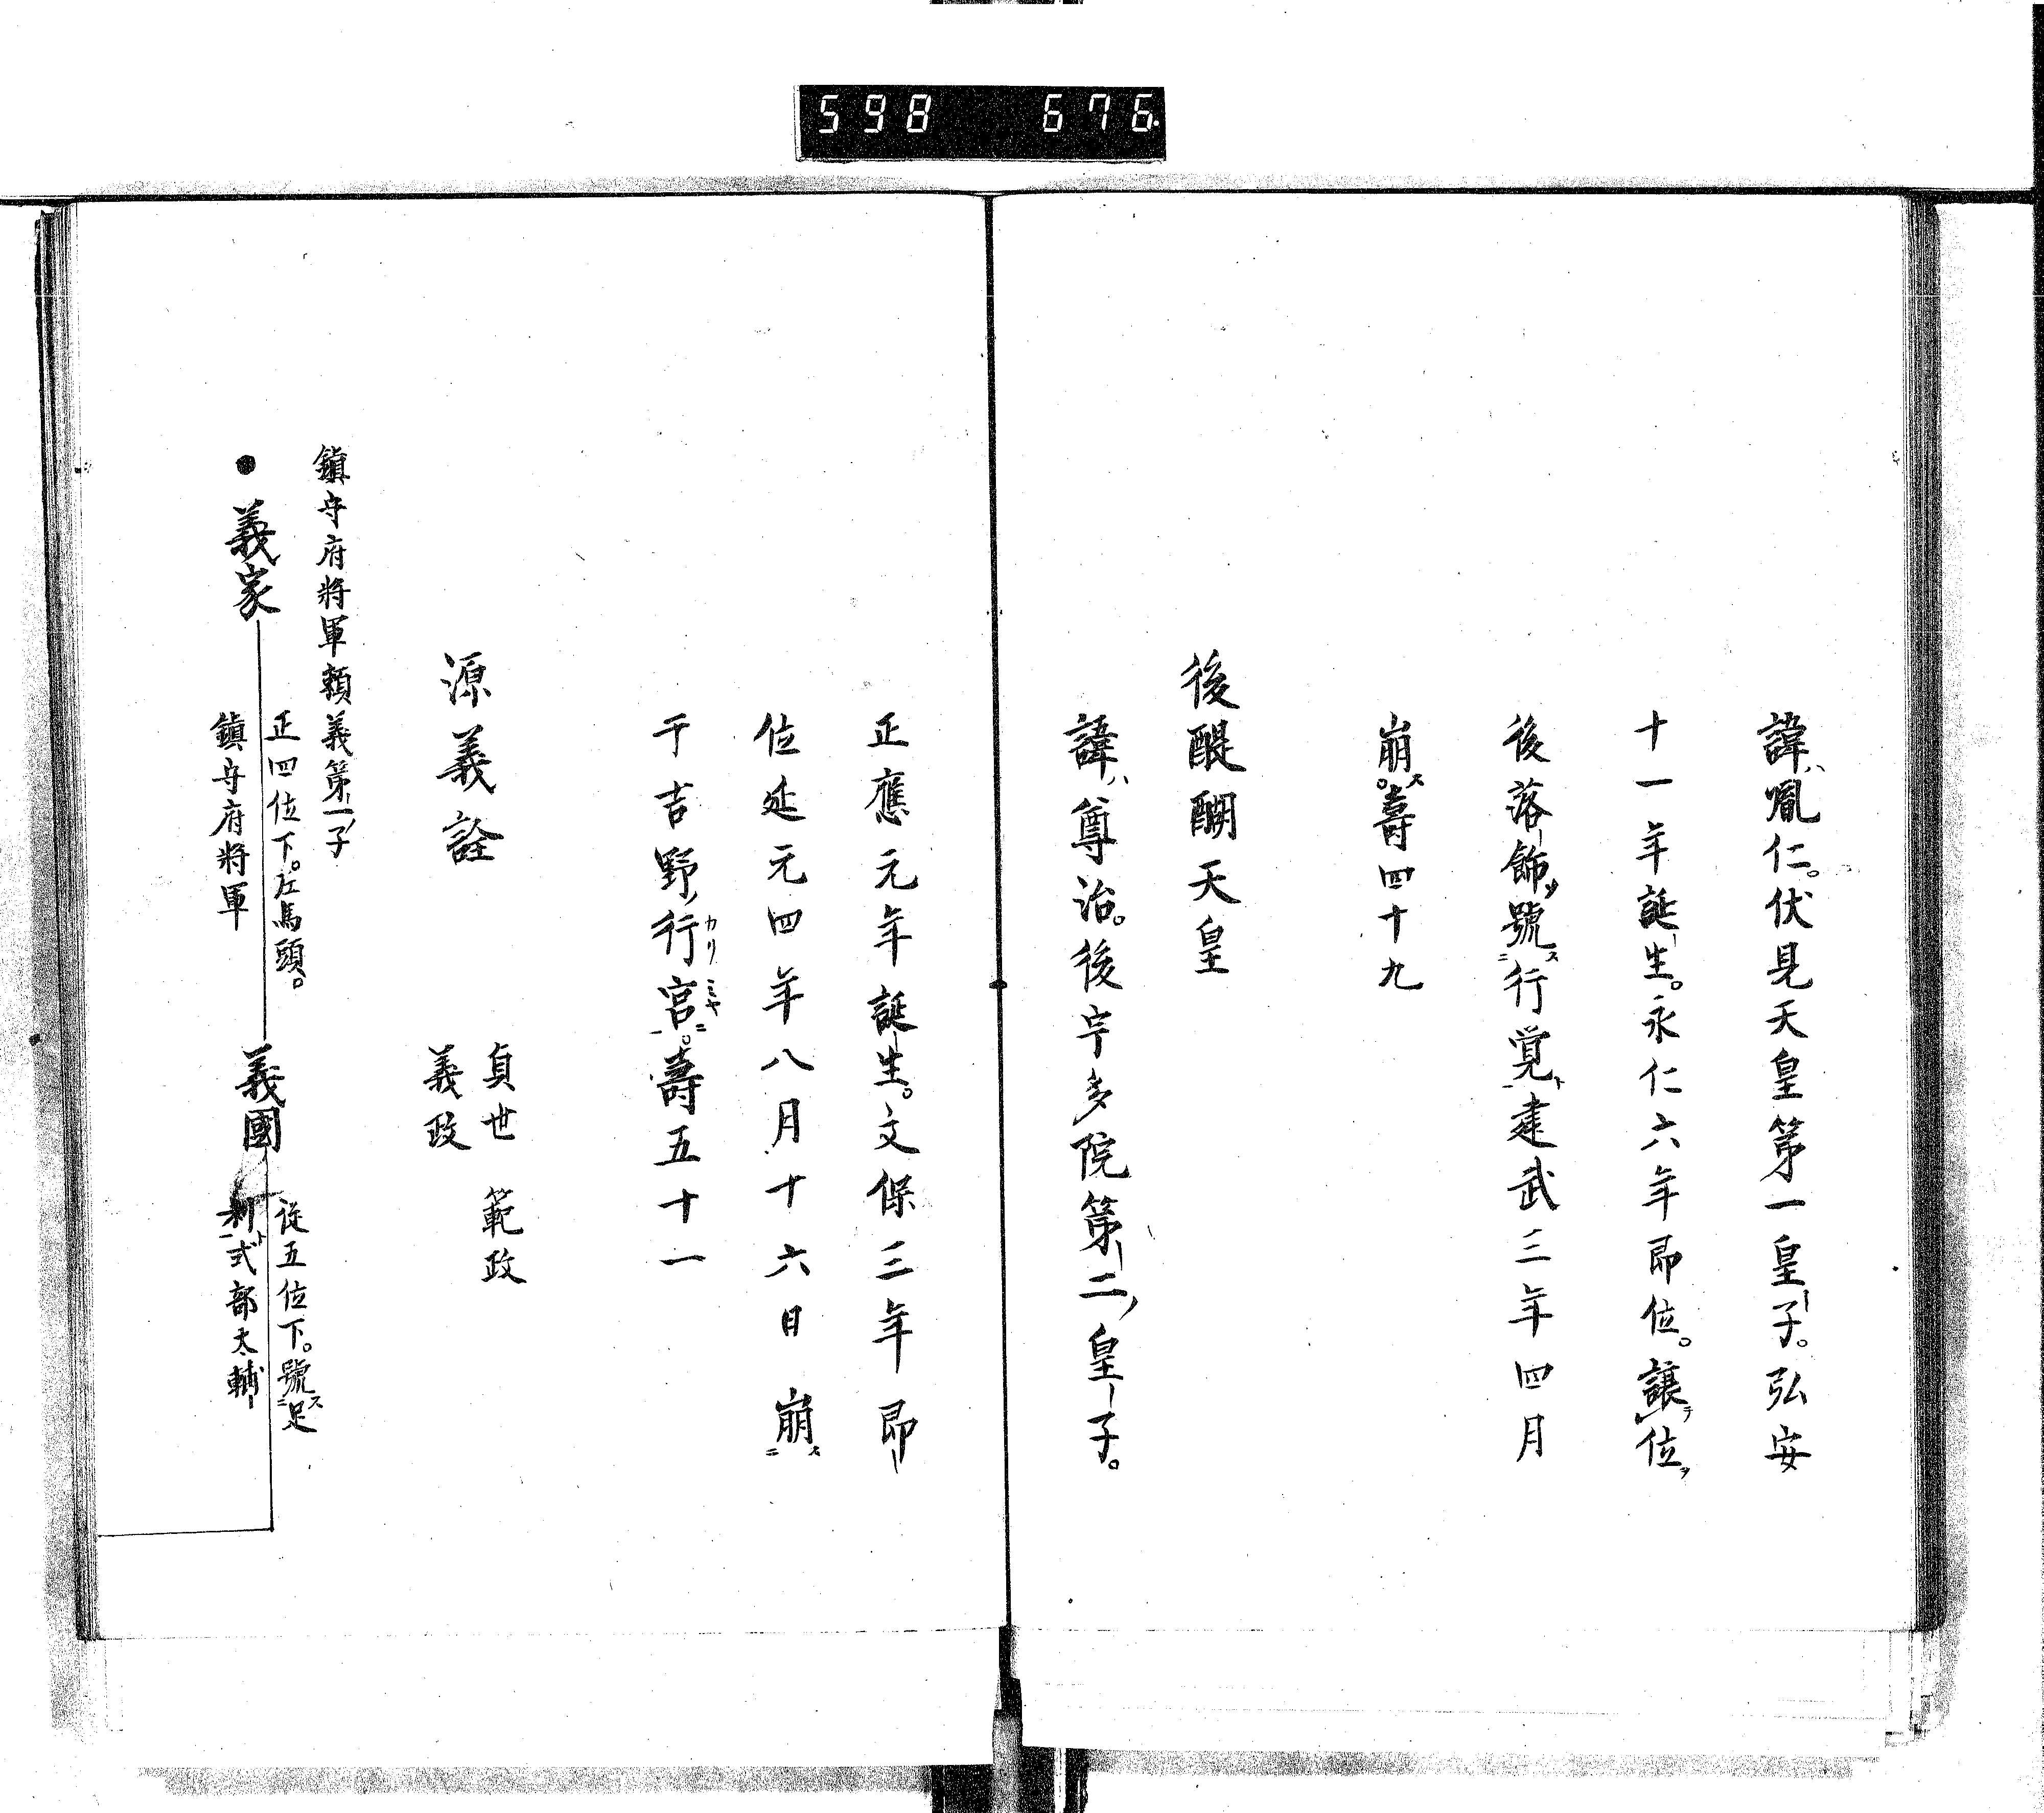 598 676.
諱ハ胤仁。伏見天皇第一皇子。弘安
十一年誕生。永仁六年即位。譲テ位ヲ
後落飾ヲ號ス行覚ト建武三年四月
崩ス。壽四十九
後醍醐天皇
諱ハ尊治。後宇多院第二ノ皇子。
正應元年誕生。文保三年即
位延元四年八月十六日崩ス
于吉野ノ行宮ニ。壽五十一
カリミヤ
源義詮
貞世 範政
義政
鎮守府將軍頼義第一ノ子
●義家
正四位下。左馬頭。
鎮守府將軍
義國
從五位下。號ス足
利ト式部大輔